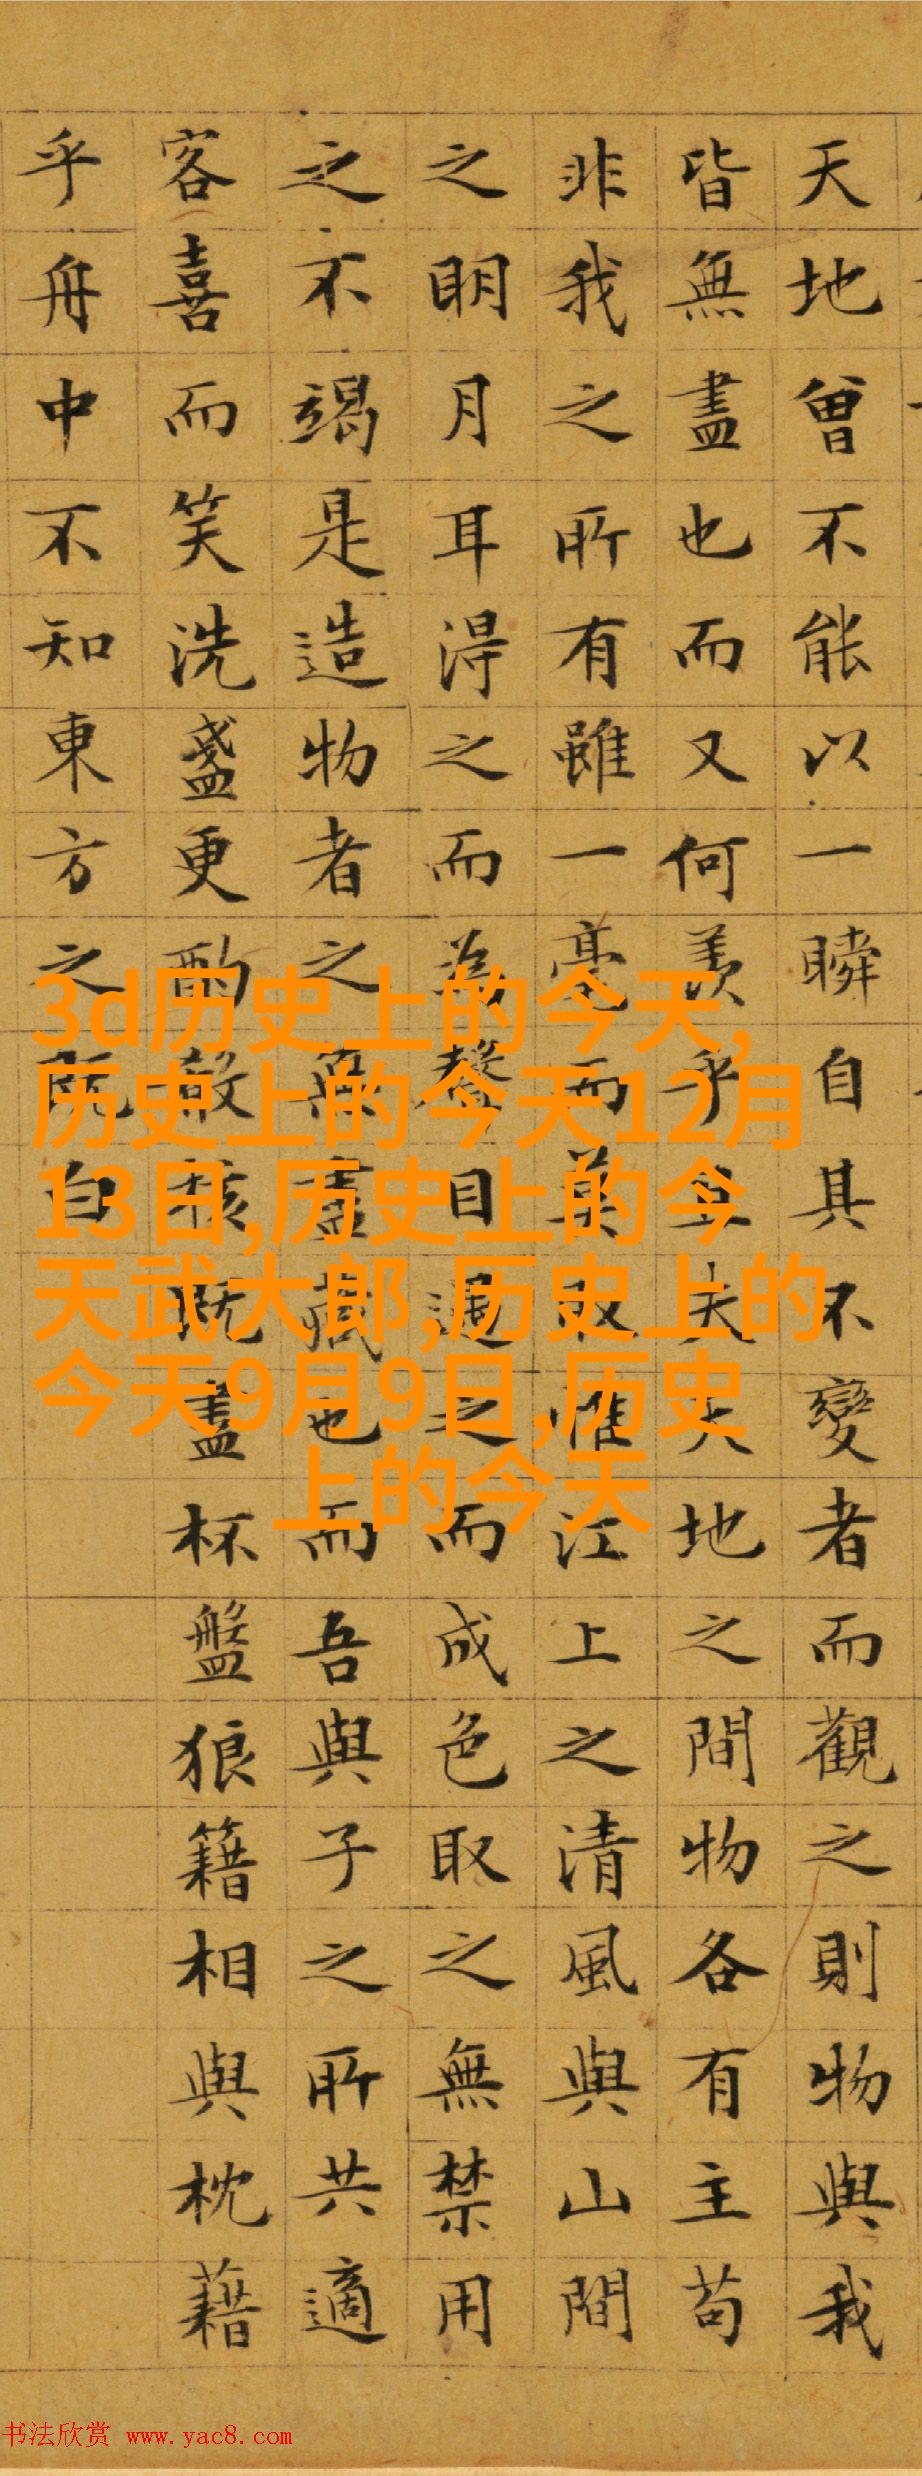 天地曾不能以一瞬自其不變者而觀之則物與我
皆無盡也而又何羡乎且夫天地之間物各有主苟
非我之所有雖一毫而莫取惟江上之清風與山間
之明月耳得之而為聲目遇之而成色取之無禁用
之不竭是造物者之無盡藏也而吾與子之所共適
客喜而笑洗盞更酌殽核既盡杯盤狼籍相與枕藉
乎舟中不知東方之既白
3d历史上的今天,
历史上的今天12月
13日,历史上的今
天武大郎,历史上的
今天9月9日,历史
上的今天
书法欣赏 www.yac8.com